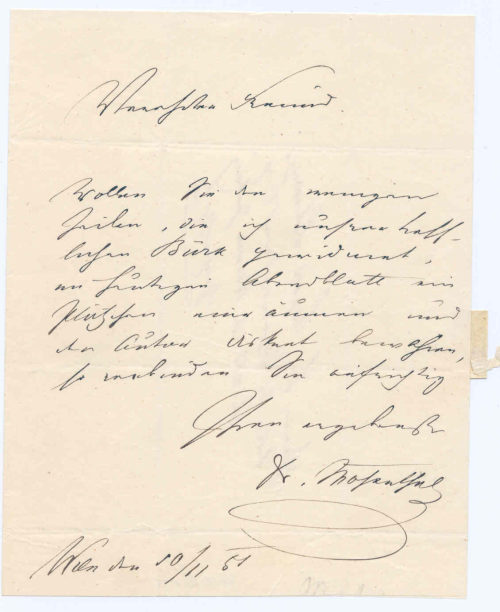 Verehrter Freund
Wollen Sie den wenigen
Zeilen, die ich unserer treff-
lichen Bürk gewidmet,
im heutigen Abendblatt ein
Plätzchen einräumen und
den Autor diskret bewahren,
so verbinden Sie aufrichtig
Ihren ergebenen
Dr. Mosenthal
Wien den 10/11